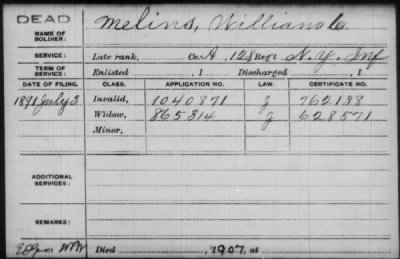 DEAD
NAME OF SOLDIER: Melins, William C.
SERVICE: Late rank, Co. A, 128 Reg't N.Y. Inf
TERM OF SERVICE: Enlisted , 1 Discharged , 1
DATE OF FILING. CLASS. APPLICATION NO. LAW. CERTIFICATE NO.
1891 July 2 Invalid, 1040871 J 762188
Widow, 865814 J 628571
Minor,
ADDITIONAL SERVICES:
REMARKS:
Died , 1907, at